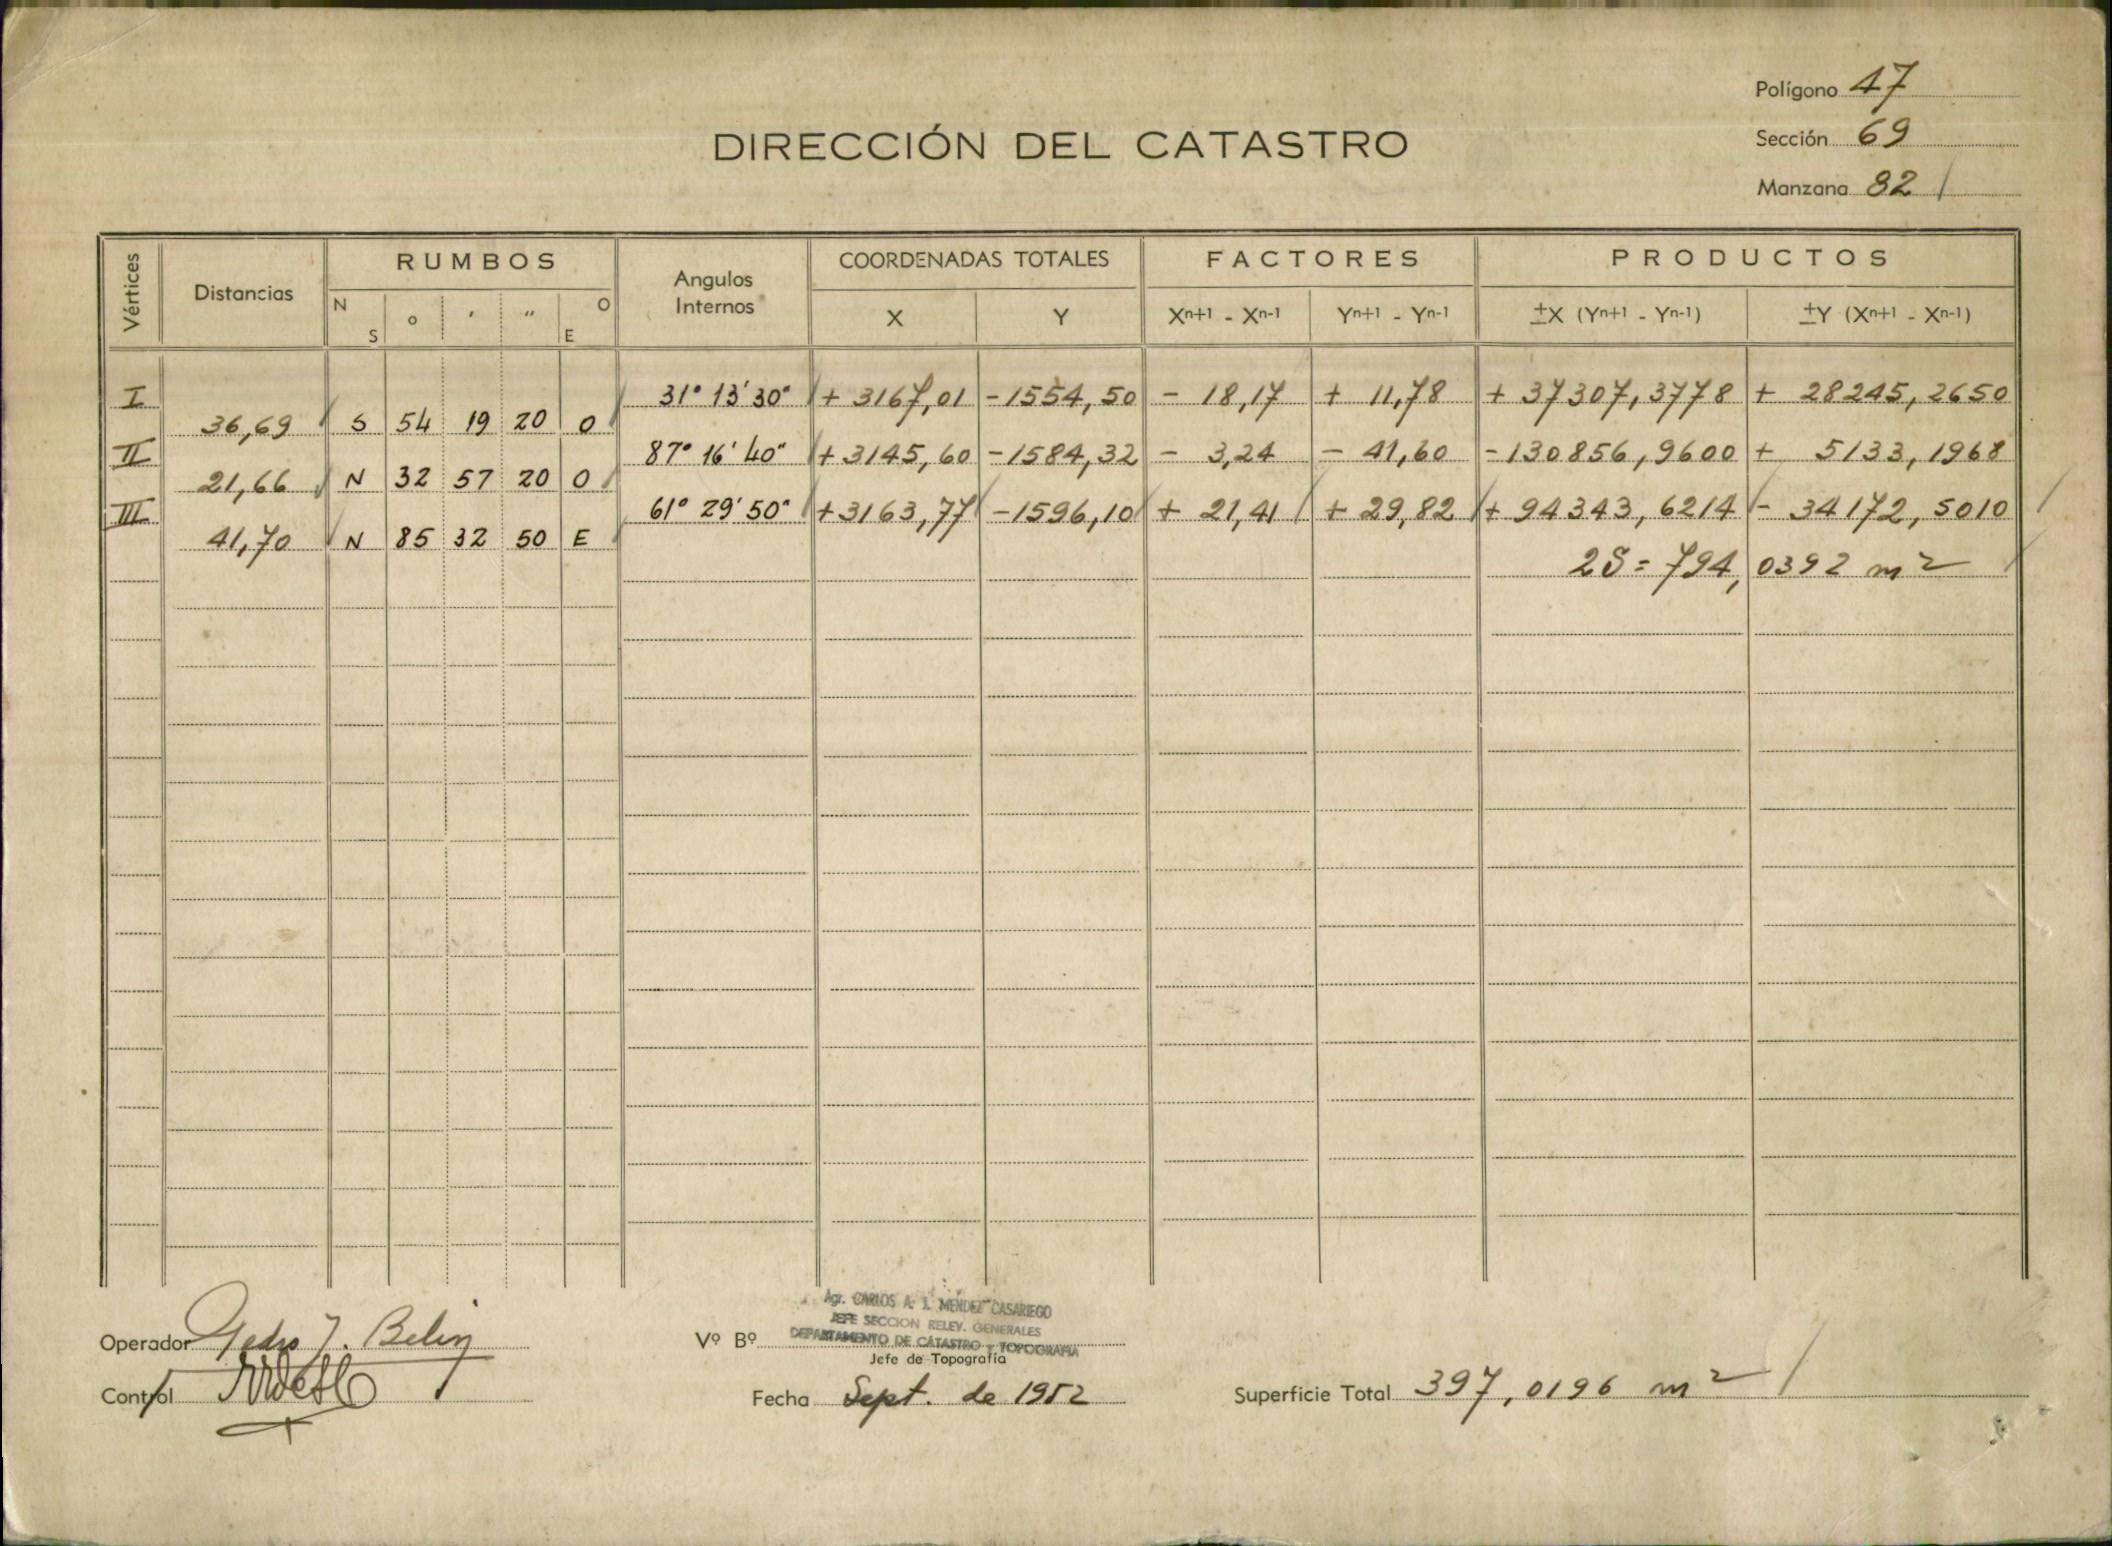 Polígono 47
DIRECCIÓN DEL CATASTRO
Sección 69
Manzana 82
Vértices Distancias RUMBOS Angulos Internos COORDENADAS TOTALES FACTORES PRODUCTOS
N S ° ' " O E X Y Xn+1 - Xn-1 Yn+1 - Yn-1 ±X (Yn+1 - Yn-1) ±Y (Xn+1 - Xn-1)
I 31° 13' 30" + 3167,01 -1554,50 - 18,17 + 11,78 + 37307,3778 + 28245,2650
36,69 S 54 19 20 O
II 87° 16' 40" +3145,60 -1584,32 - 3,24 - 41,60 -130856,9600 + 5133,1968
21,66 N 32 57 20 O
III 61° 29' 50" +3163,77 -1596,10 + 21,41 + 29,82 + 94343,6214 - 34172,5010
41,70 N 85 32 50 E
2S = 794,0392 m2
Agr. CARLOS A. J. MENDEZ CASARIEGO
JEFE SECCION RELEV. GENERALES
DEPARTAMENTO DE CATASTRO Y TOPOGRAFIA
Operador Pedro J. Belin
Vº Bº
Jefe de Topografía
Control
Fecha Sept. de 1952
Superficie Total 397,0196 m2